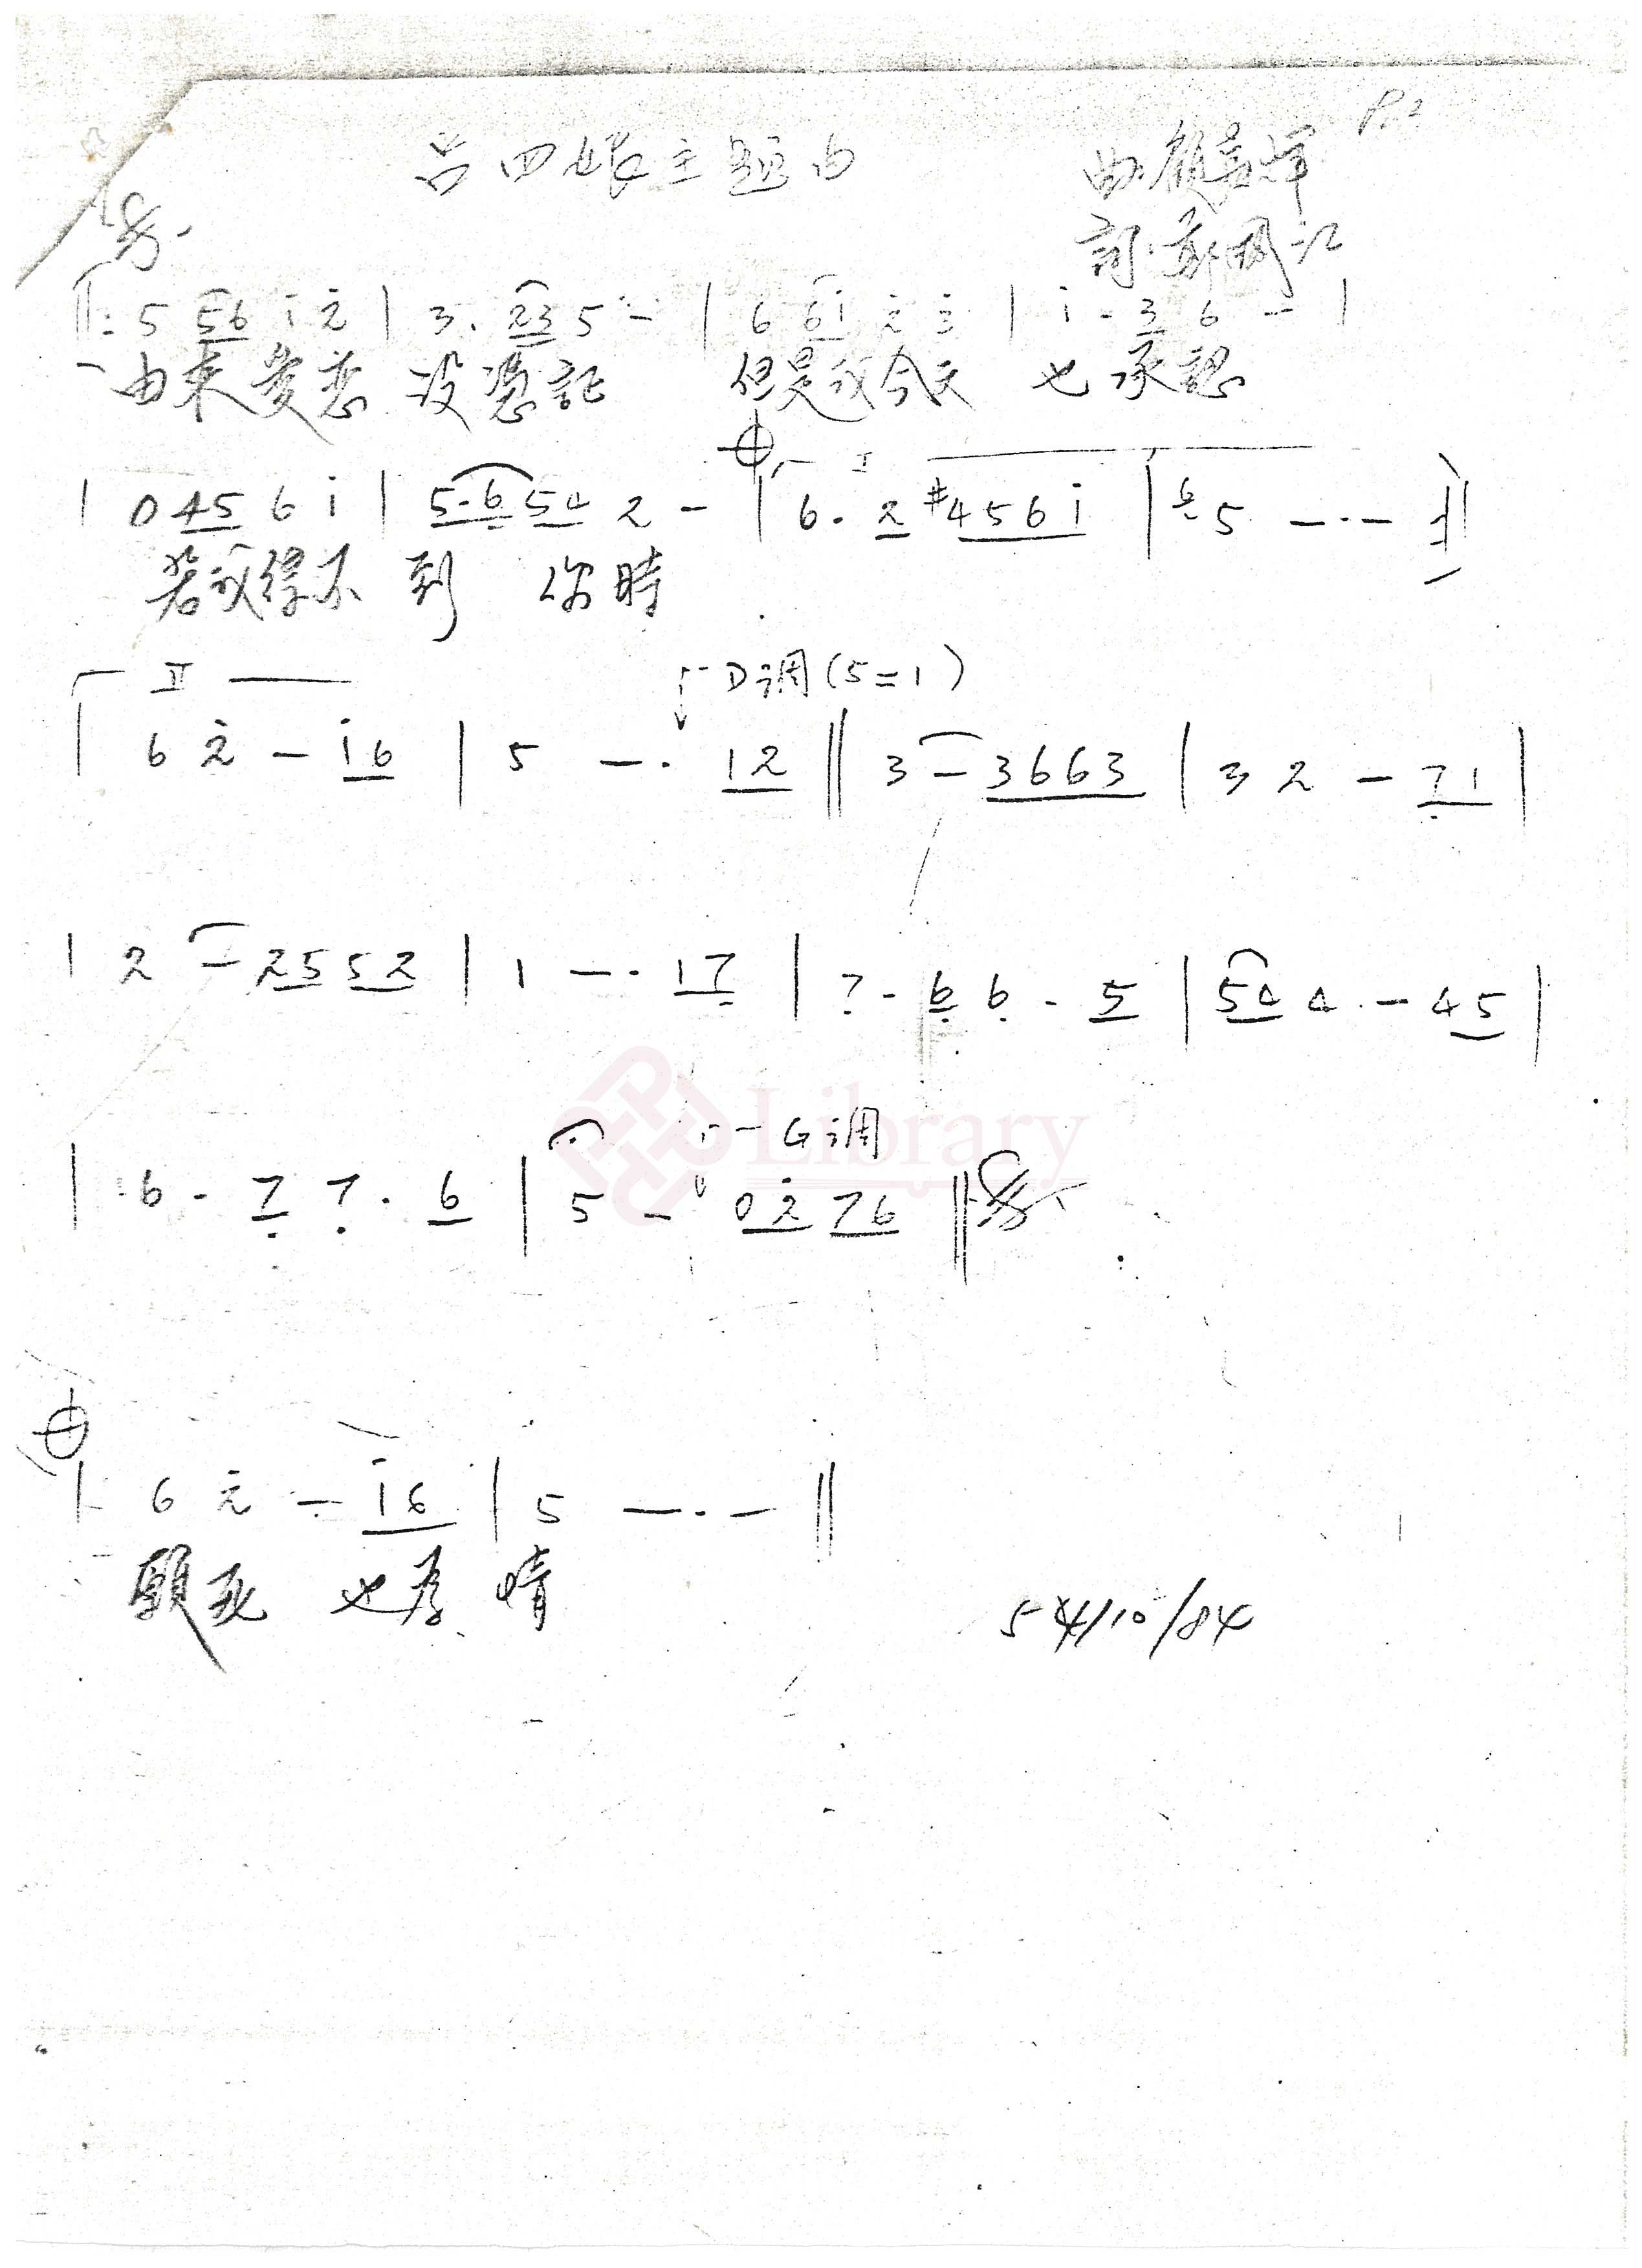 P.2
呂四娘主題曲
曲:顧嘉煇
詞:鄭國江
‖: 5 56 i 2̇ | 3. 23 5 - | 6 6i 2̇ 3̇ | i . 3 6 - |
由來愛戀 沒憑証 但是我今天 也承認
I
| 0 45 6 i | 5.6 54 2 - | 6. 2 #4 5 6 i | 5 - . - :‖
若我得不到 你時
II D调(5=1)
6 2̇ - i6 | 5 - . 12 ‖ 3 - 3663 | 3 2 - 7̣1 |
| 2 - 2552 | 1 - . 17̣ | 7̣ . 6̣ 6̣ . 5 | 54 4 . - 45 |
G调
| 6 . 7̣ 7̣ . 6 | 5 - 0 2̇ 76 ‖
6 2̇ - i6 | 5 - . - ‖
願死 也為 情
Library